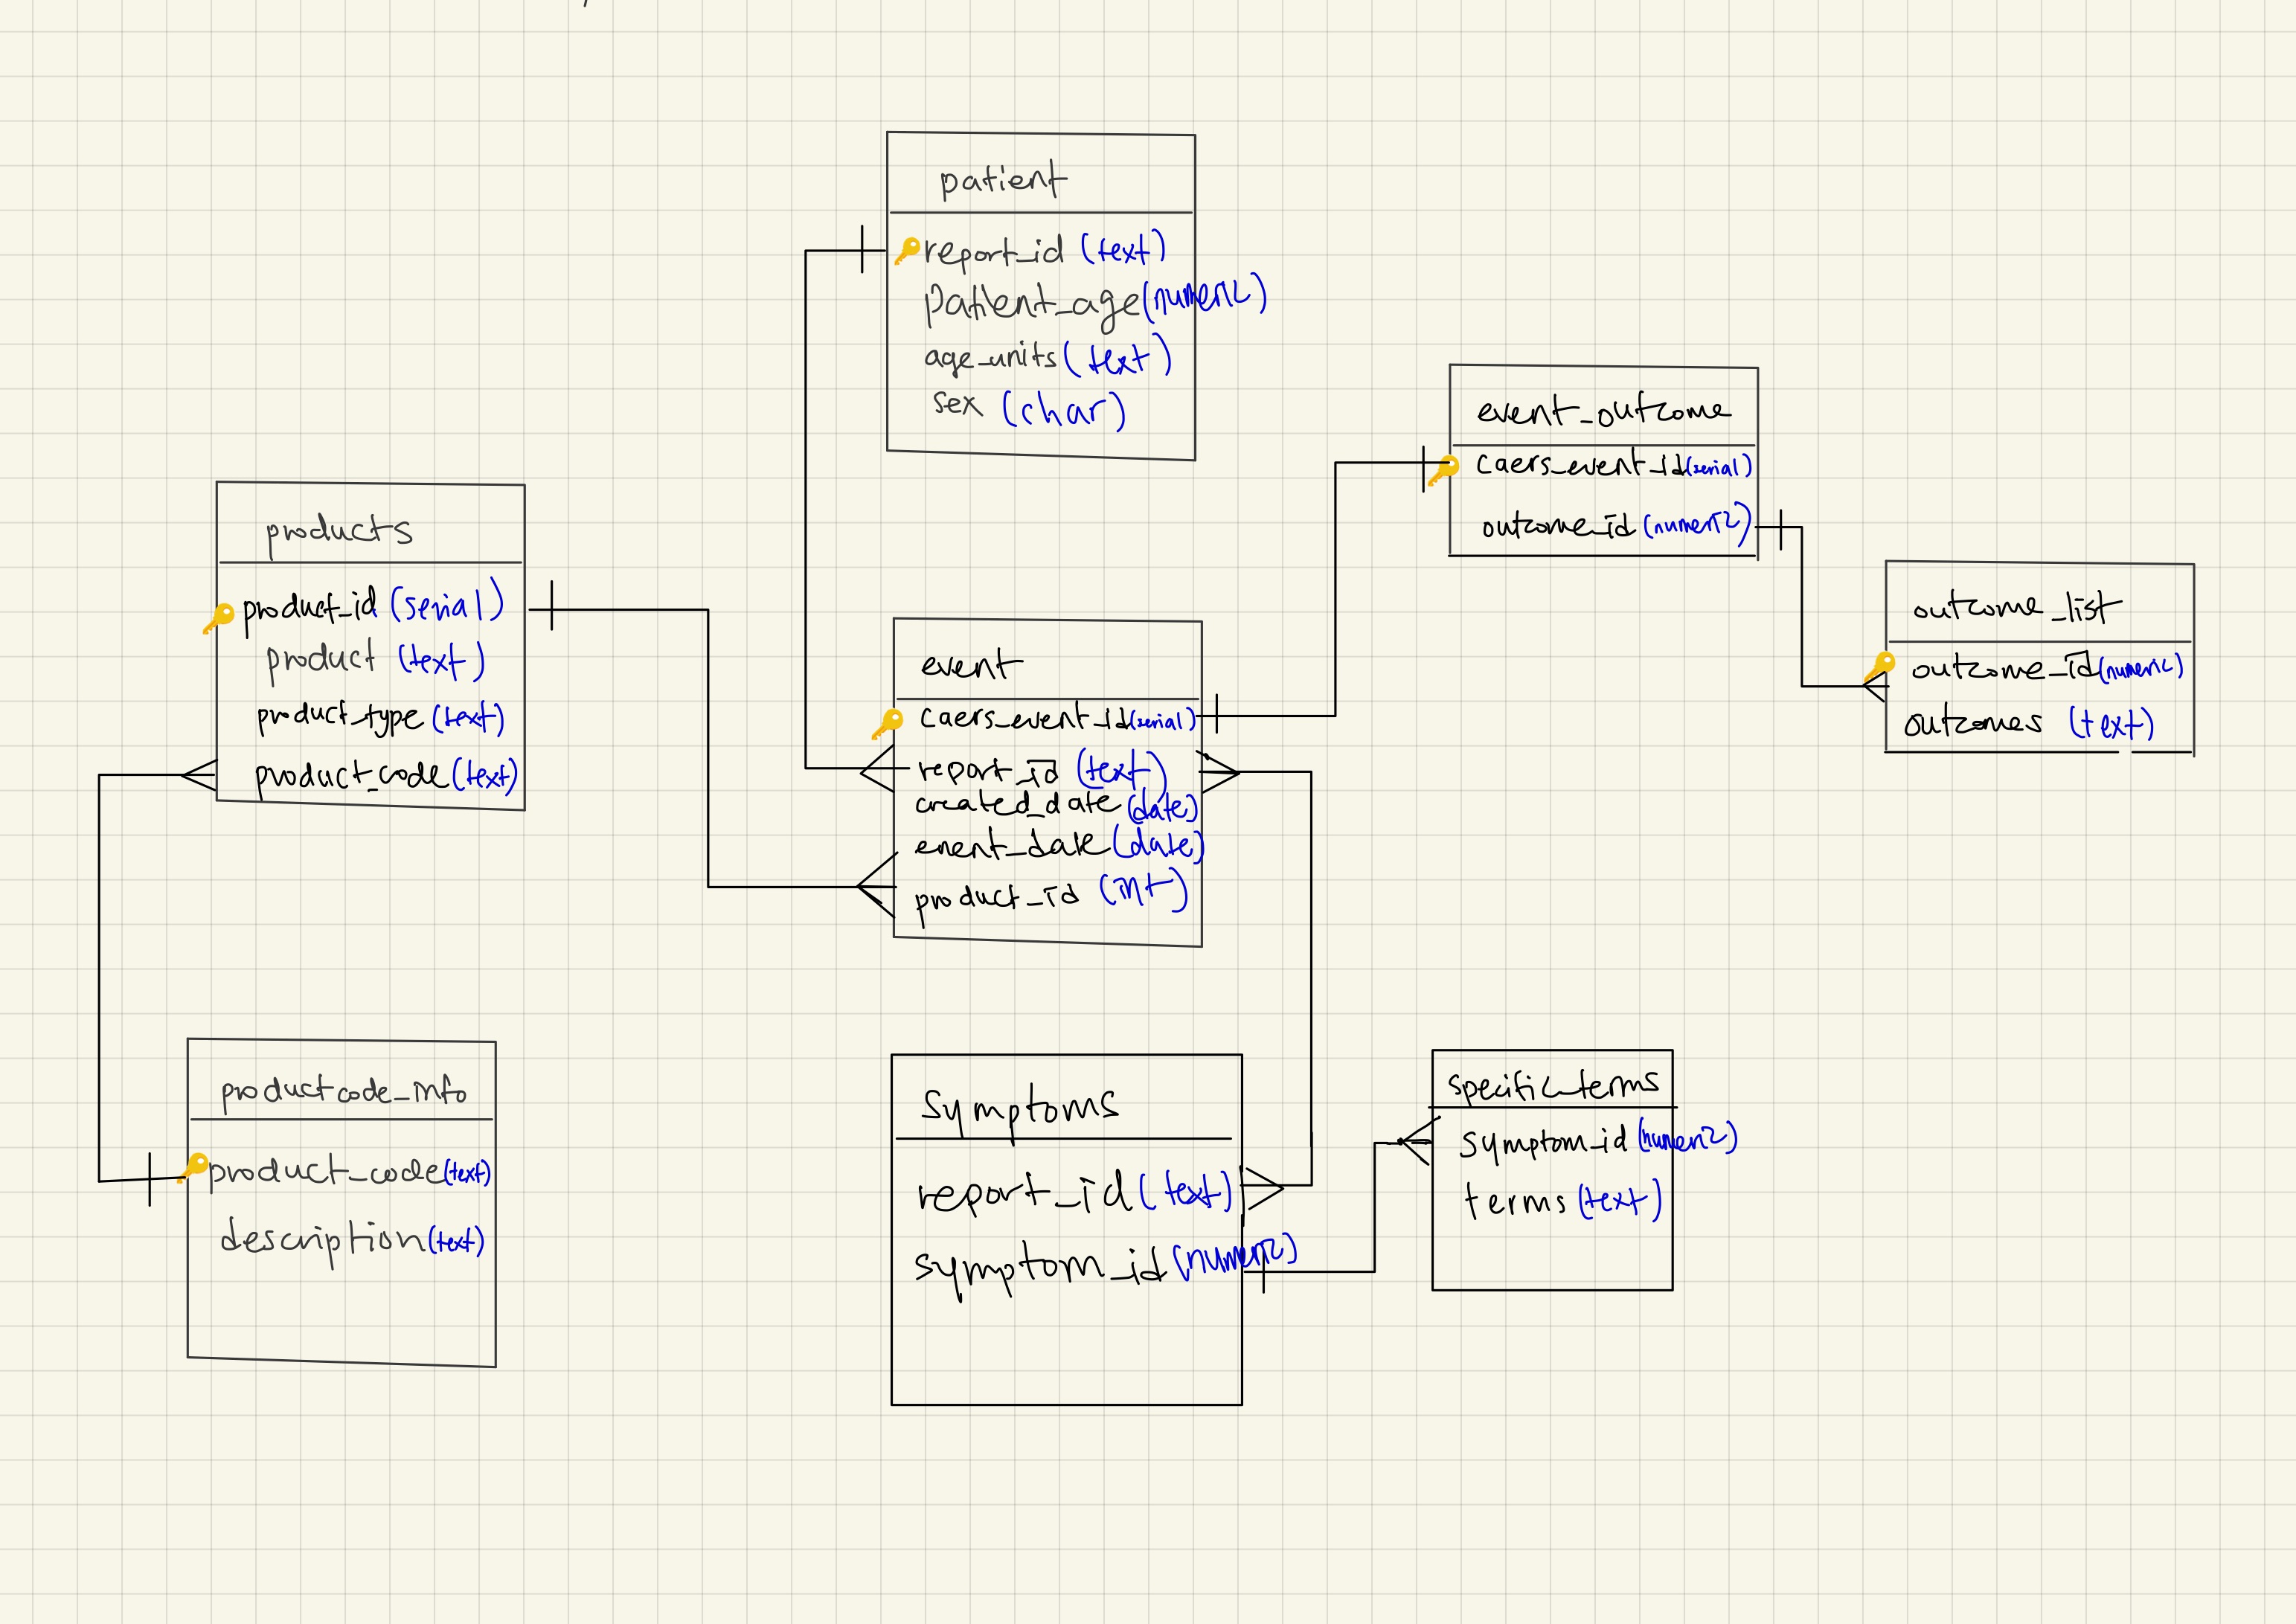 patient
report_id (text)
patient_age (numeric)
age_units (text)
sex (char)
event_outcome
caers_event_id (serial)
outcome_id (numeric)
products
product_id (serial)
product (text)
product_type (text)
product_code (text)
outcome_list
outcome_id (numeric)
outcomes (text)
event
caers_event_id (serial)
report_id (text)
created_date (date)
event_date (date)
product_id (int)
productcode_info
product_code (text)
description (text)
symptoms
report_id (text)
symptom_id (numeric)
specific_terms
symptom_id (numeric)
terms (text)